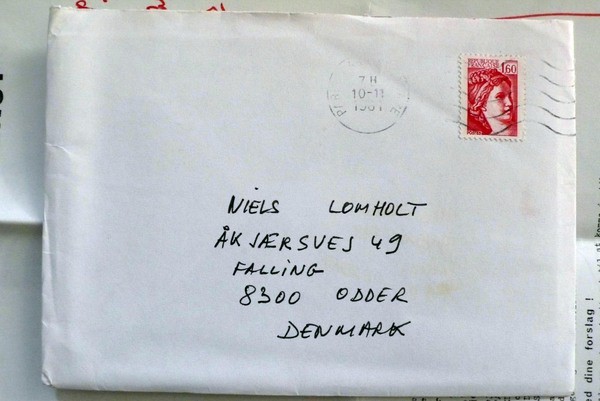 7H
10-11
1981
REPUBLIQUE
FRANÇAISE
1,60
NIELS LOMHOLT
ÅKJÆRSVEJ 49
FALLING
8300 ODDER
DENMARK
ed dine forslag !